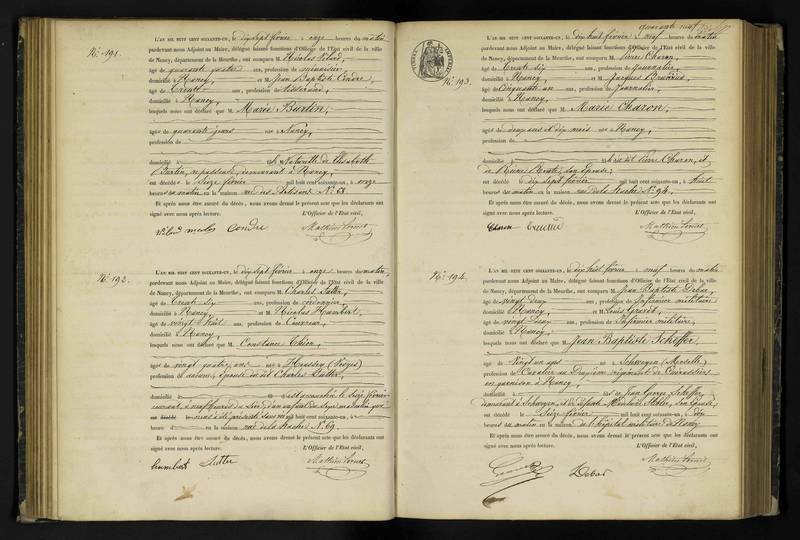 N.° 191.
L'AN MIL HUIT CENT SOIXANTE-UN, le dix sept février à onze heures du matin
pardevant nous Adjoint au Maire, délégué faisant fonctions d'Officier de l'Etat civil de la ville
de Nancy, département de la Meurthe, ont comparu M. Nicolas
âgé de quarante quatre ans, profession de menuisier,
domicilié à Nancy, et M. Jean Baptiste Condre,
âgé de trente ans, profession de tisserand,
domicilié à Nancy,
lesquels nous ont déclaré que M. Marie Burtin,
âgé de quarante jours né à Nancy,
profession de
domicilié à naturelle de Elisabeth
Burtin, demeurant à Nancy,
est décédé le seize février mil huit cent soixante-un, à onze
heures du matin en la maison rue des Artisans N.° 68.
Et après nous être assuré du décès, nous avons dressé le présent acte que les déclarants ont
signé avec nous après lecture. L'Officier de l'Etat civil,
nicolas Condre
N.° 192.
L'AN MIL HUIT CENT SOIXANTE-UN, le dix sept février à onze heures du matin,
pardevant nous Adjoint au Maire, délégué faisant fonctions d'Officier de l'Etat civil de la ville
de Nancy, département de la Meurthe, ont comparu M. Charles Sutter,
âgé de trente six ans, profession de cordonnier,
domicilié à Nancy, et M. Nicolas Humbert,
âgé de vingt huit ans, profession de Couvreur,
domicilié à Nancy,
lesquels nous ont déclaré que M. Constance Thiery,
âgé de vingt quatre ans né à Houssey (Vosges)
profession de épouse du dit Charles Sutter,
domicilié à est accouchée le seize février
courant, à neuf heures du soir, d'un enfant du sexe masculin
mil huit cent soixante-un, à
heures en la maison rue de la hache N.° 69.
Et après nous être assuré du décès, nous avons dressé le présent acte que les déclarants ont
signé avec nous après lecture. L'Officier de l'Etat civil,
humbert Sutter
quarante neuf
N.° 193.
L'AN MIL HUIT CENT SOIXANTE-UN, le dix huit février à neuf heures du matin
pardevant nous Adjoint au Maire, délégué faisant fonctions d'Officier de l'Etat civil de la ville
de Nancy, département de la Meurthe, ont comparu M. Pierre Charon,
âgé de trente six ans, profession de journalier,
domicilié à Nancy, et M. Jacques
âgé de cinquante un ans, profession de journalier,
domicilié à Nancy,
lesquels nous ont déclaré que M. Marie Charon,
âgé de deux ans et dix mois né à Nancy,
profession de
domicilié à Pierre Charon, et
de Reine son épouse;
est décédé le dix sept février mil huit cent soixante-un, à huit
heures du matin en la maison rue de la hache N.° 94.
Et après nous être assuré du décès, nous avons dressé le présent acte que les déclarants ont
signé avec nous après lecture. L'Officier de l'Etat civil,
Charon
N.° 194.
L'AN MIL HUIT CENT SOIXANTE-UN, le dix huit février à neuf heures du matin
pardevant nous Adjoint au Maire, délégué faisant fonctions d'Officier de l'Etat civil de la ville
de Nancy, département de la Meurthe, ont comparu M. Jean Baptiste Debar,
âgé de vingt deux ans, profession de Infirmier militaire
domicilié à Nancy, et M. Louis
âgé de vingt deux ans, profession de Infirmier militaire,
domicilié à Nancy,
lesquels nous ont déclaré que M. Jean Baptiste Scheffer,
âgé de vingt un ans né à (Moselle)
profession de Cavalier au Deuxième régiment de Cuirassiers
en garnison à Nancy,
domicilié à Jean George Scheffer,
demeurant à et de son épouse,
est décédé le seize février mil huit cent soixante-un, à dix
heures du matin en la maison de l'hôpital militaire de Nancy
Et après nous être assuré du décès, nous avons dressé le présent acte que les déclarants ont
signé avec nous après lecture. L'Officier de l'Etat civil,
Debar